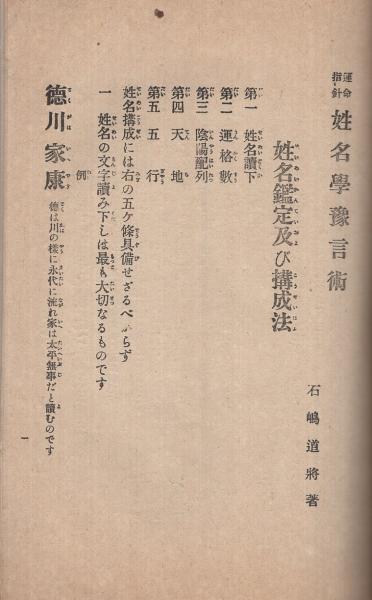 運命指針 姓名學豫言術
石嶋道將著
姓名鑑定及び搆成法
第一 姓名讀下
第二 運格數
第三 陰陽配列
第四 天地
第五 五行
姓名搆成には右の五ケ條具備せざるべからず
一 姓名の文字讀み下しは最も大切なるものです
例
德川家康 德は川の樣に永代に流れ家は太平無事だと讀むのです
一